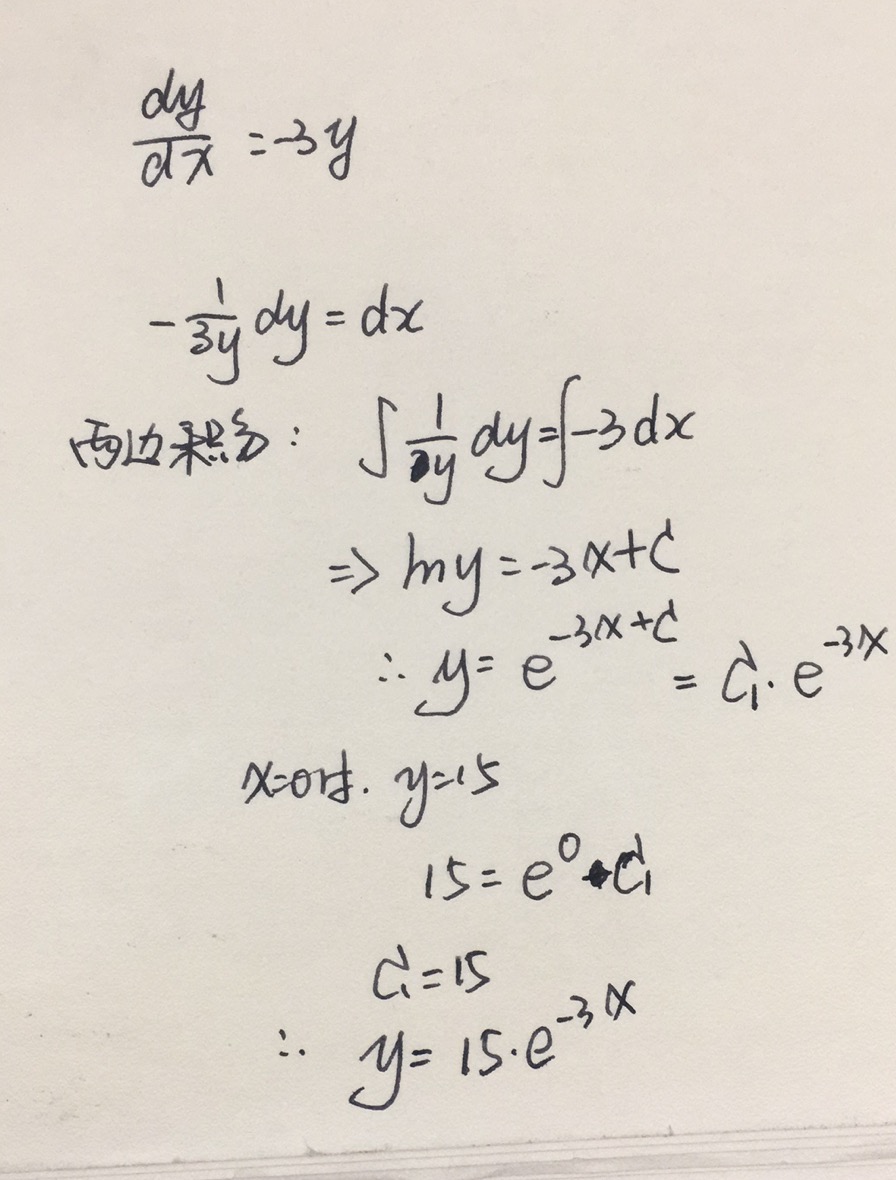 dy/dx = -3y
-1/3y dy = dx
两边积分: ∫ 1/y dy = ∫ -3 dx
⇒ ln y = -3x + C
∴ y = e^{-3x+C} = C₁·e^{-3x}
x=0时. y=15
15 = e^0·C₁
C₁ = 15
∴ y = 15·e^{-3x}